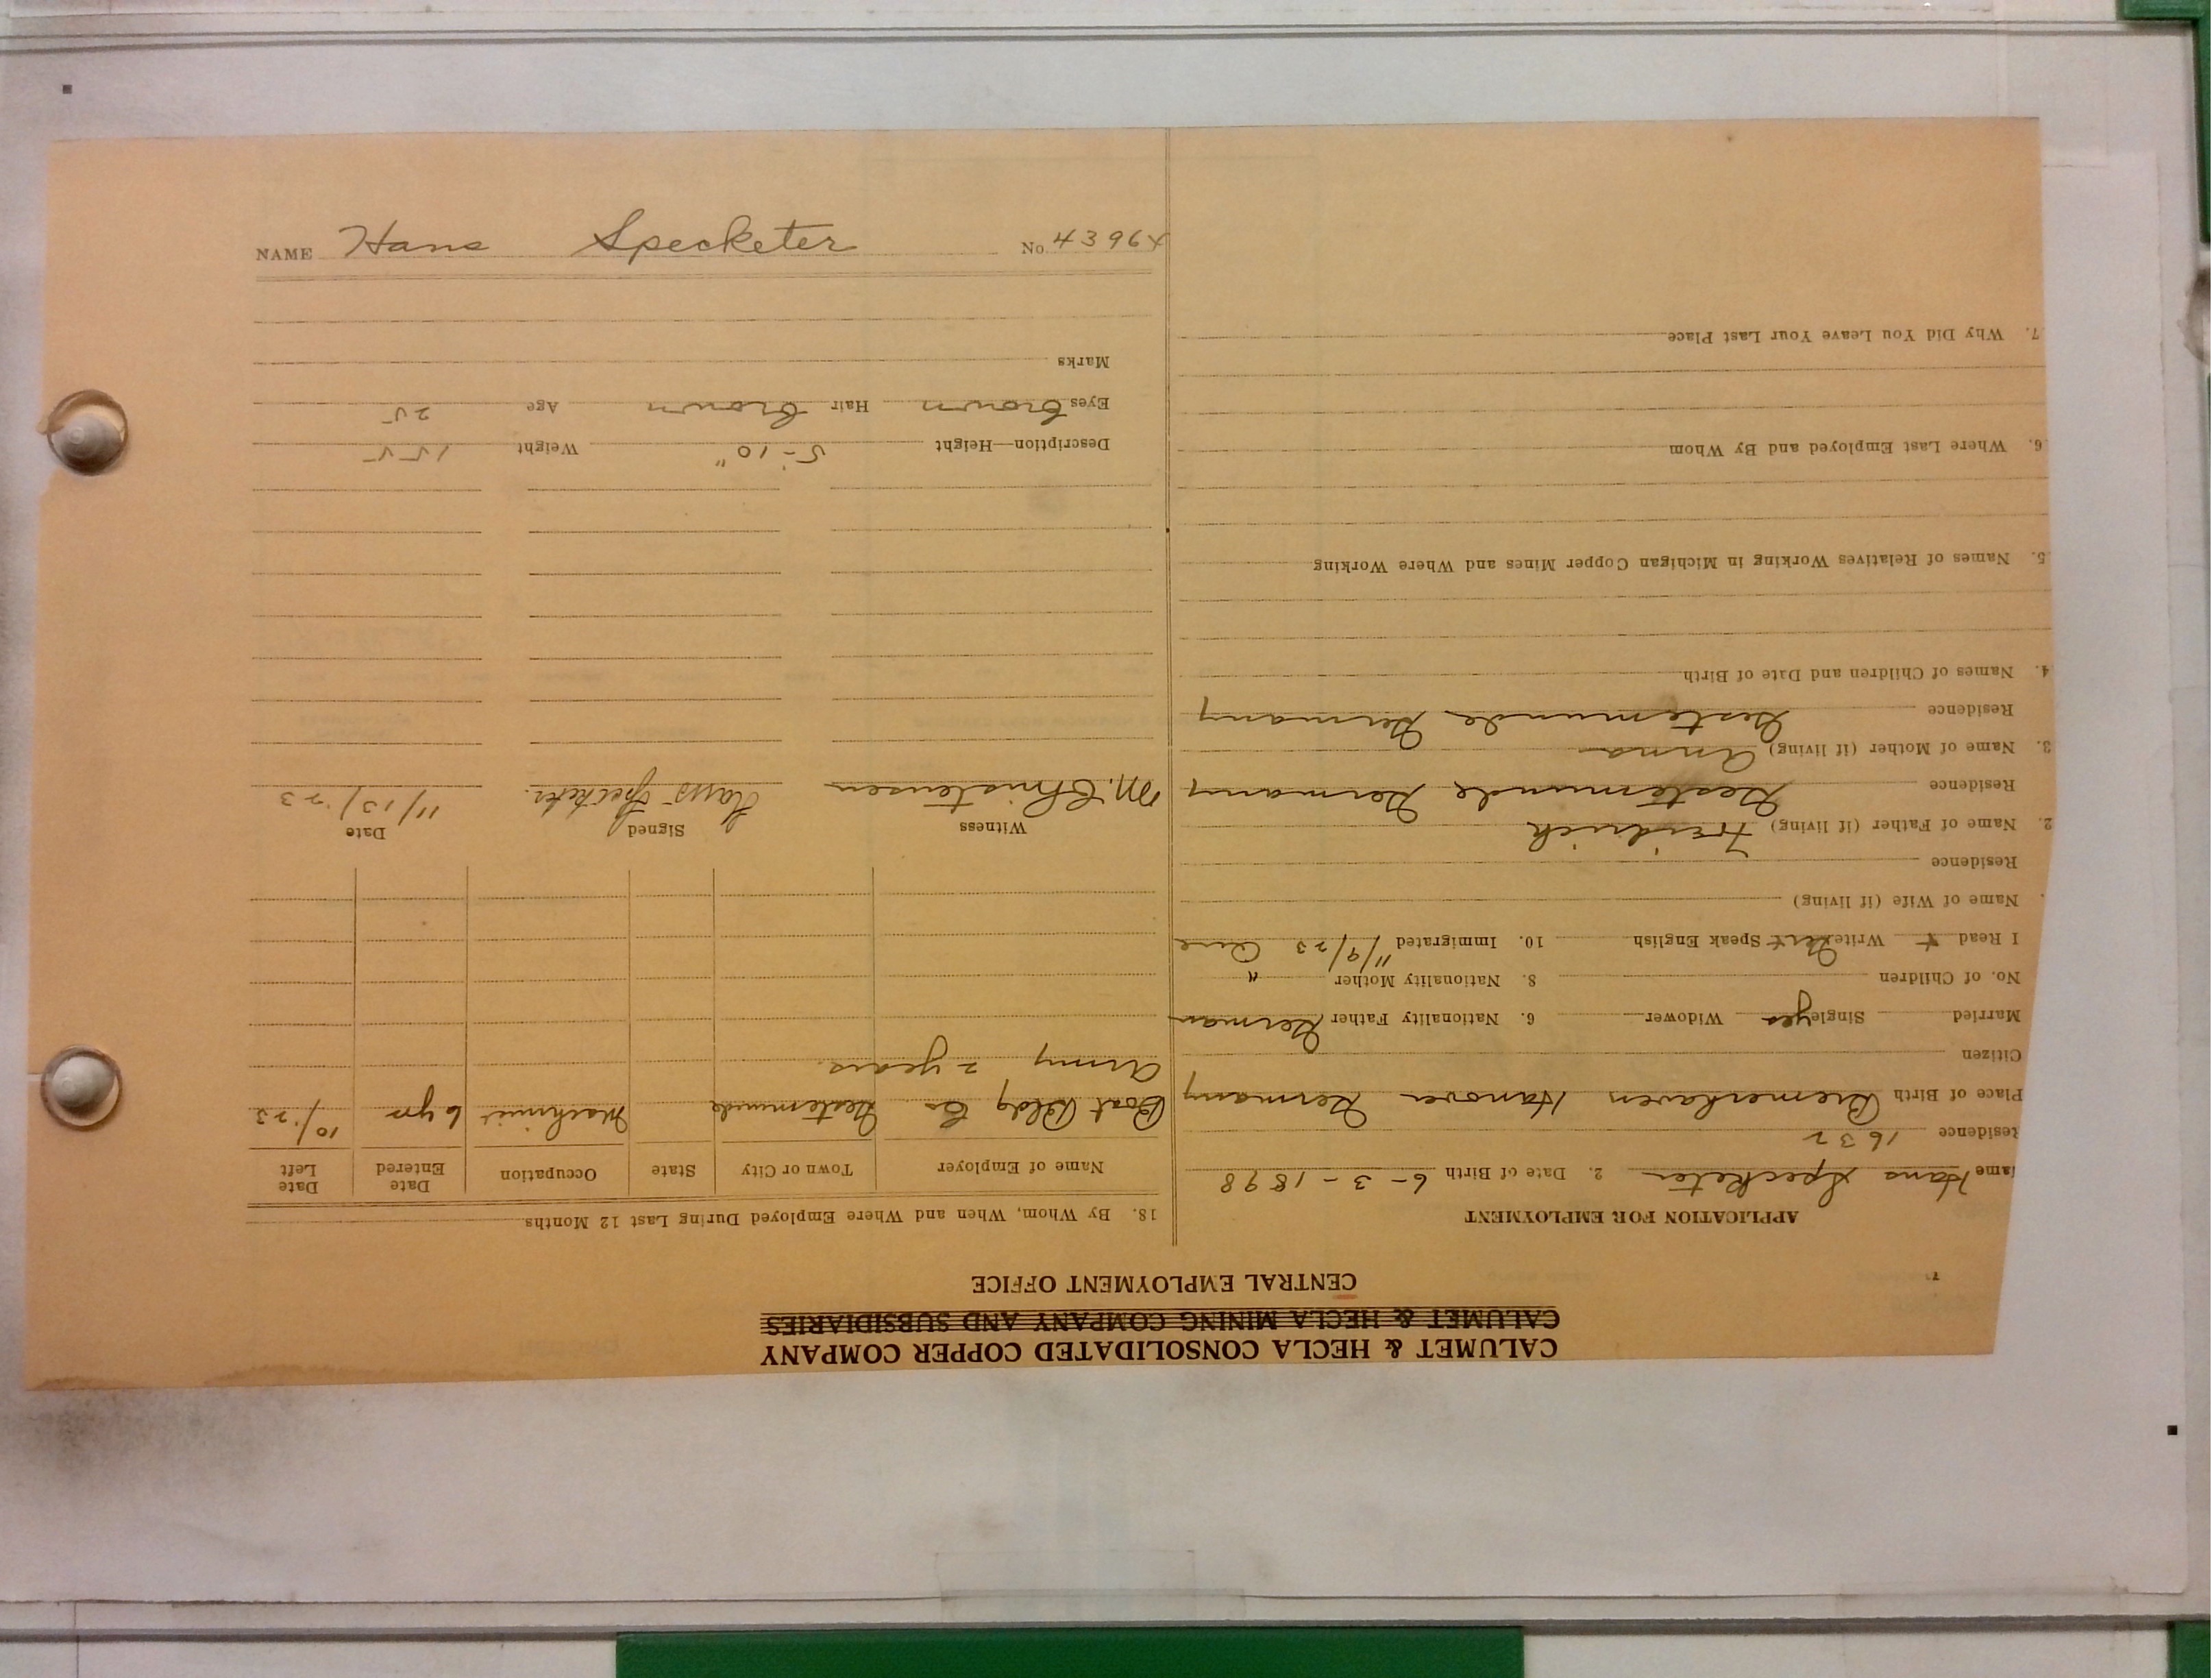 NAME Hans Specketer No. 4396X
CALUMET & HECLA CONSOLIDATED COPPER COMPANY
CALUMET & HECLA MINING COMPANY AND SUBSIDIARIES
CENTRAL EMPLOYMENT OFFICE
APPLICATION FOR EMPLOYMENT
ame Hans Specketer 2. Date of Birth 6-3-1898
Residence 1632
Place of Birth Bremerhaven Hanover Germany
Citizen
Married Single yes Widower 6. Nationality Father German
No. of Children 8. Nationality Mother "
I Read + Write + Speak English 10. Immigrated 11/9/23
Name of Wife (if living)
Residence
2. Name of Father (if living) Freidrich
Residence Gestemunde Germany
3. Name of Mother (if living) Anna
Residence Gestemunde Germany
4. Names of Children and Date of Birth
5. Names of Relatives Working in Michigan Copper Mines and Where Working
6. Where Last Employed and By Whom
7. Why Did You Leave Your Last Place
18. By Whom, When and Where Employed During Last 12 Months
Name of Employer Town or City State Occupation Date Entered Date Left
Boat Bldg Co Gestemunde Machinist 6 yrs 10/23
Army 2 years.
Witness Signed Date
M. Christensen Hans Specketer. 11/13/23
Description—Height 5-10" Weight 155
Eyes brown Hair brown Age 25
Marks